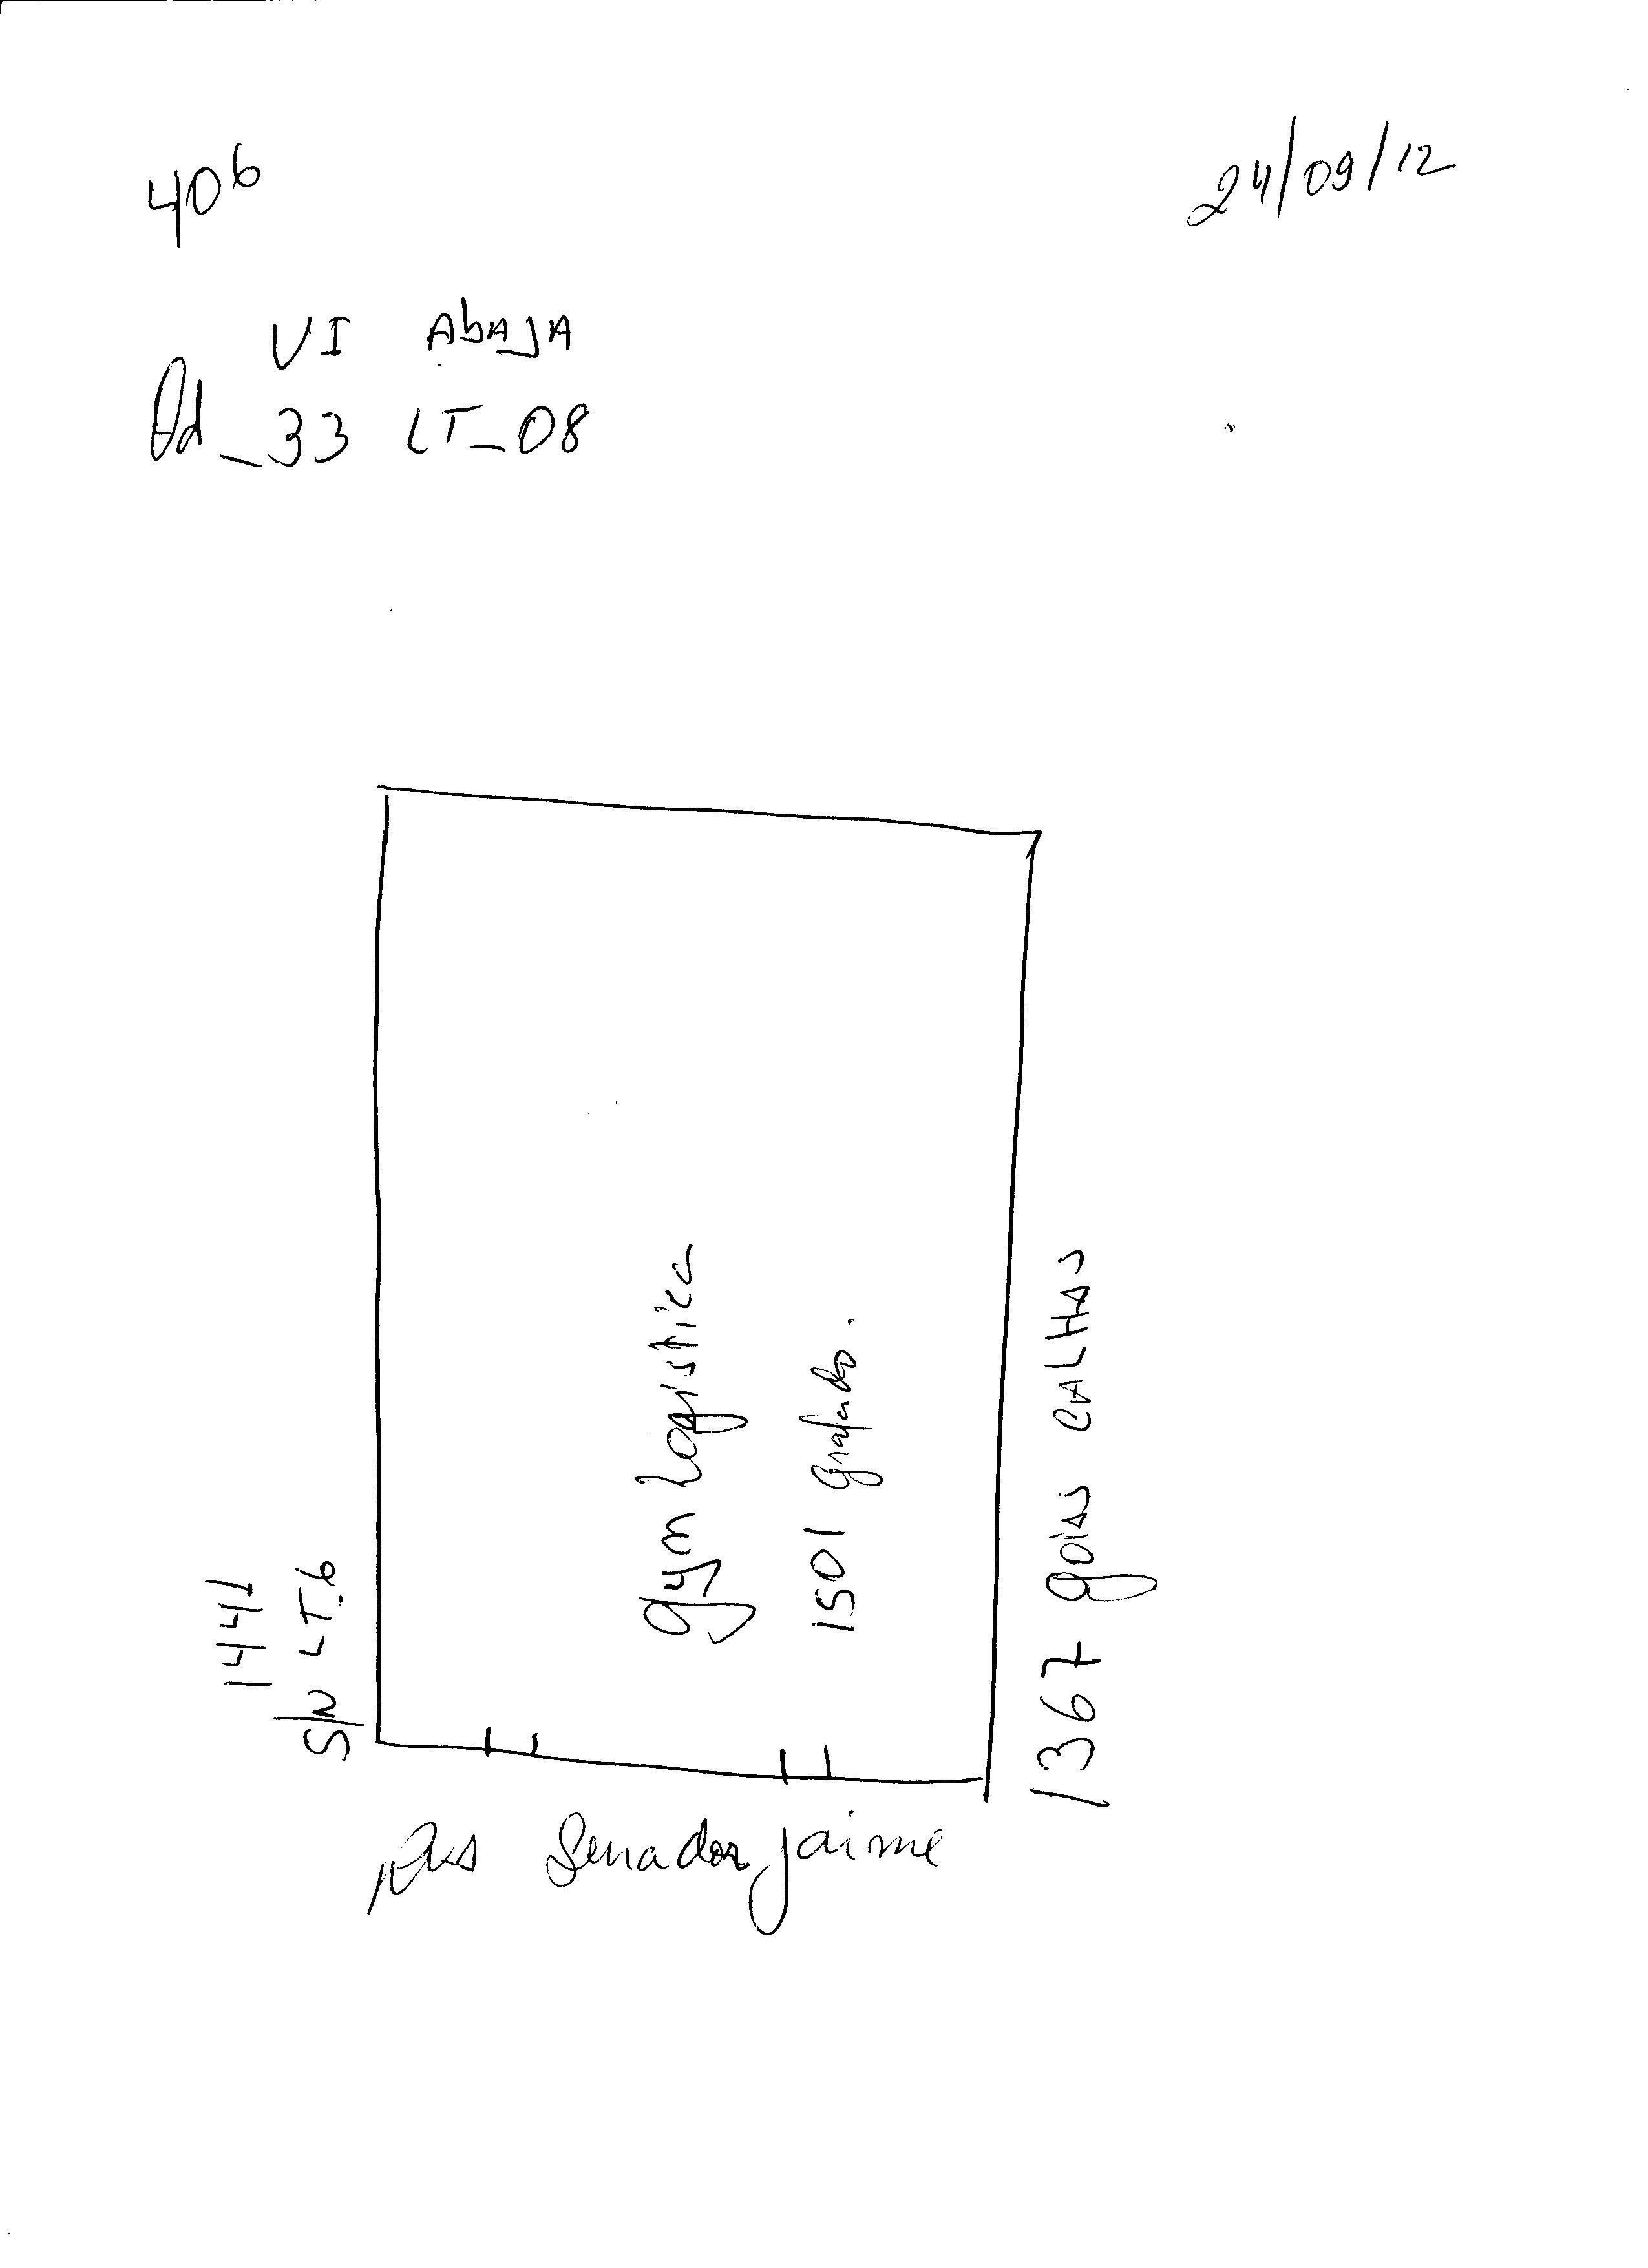 406
24/09/12
VI AbAJA
Qd_33 LT_08
1441
S/N LT_6
gyn Logistica
1501 grafado.
1367 goias CALHAS
Senador jaime